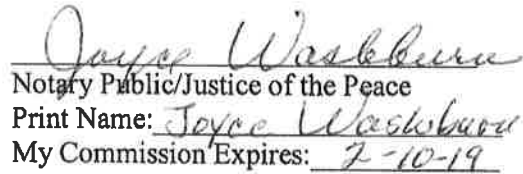 Joyce Washburn
Notary Public/Justice of the Peace
Print Name: Joyce Washburn
My Commission Expires: 2-10-19